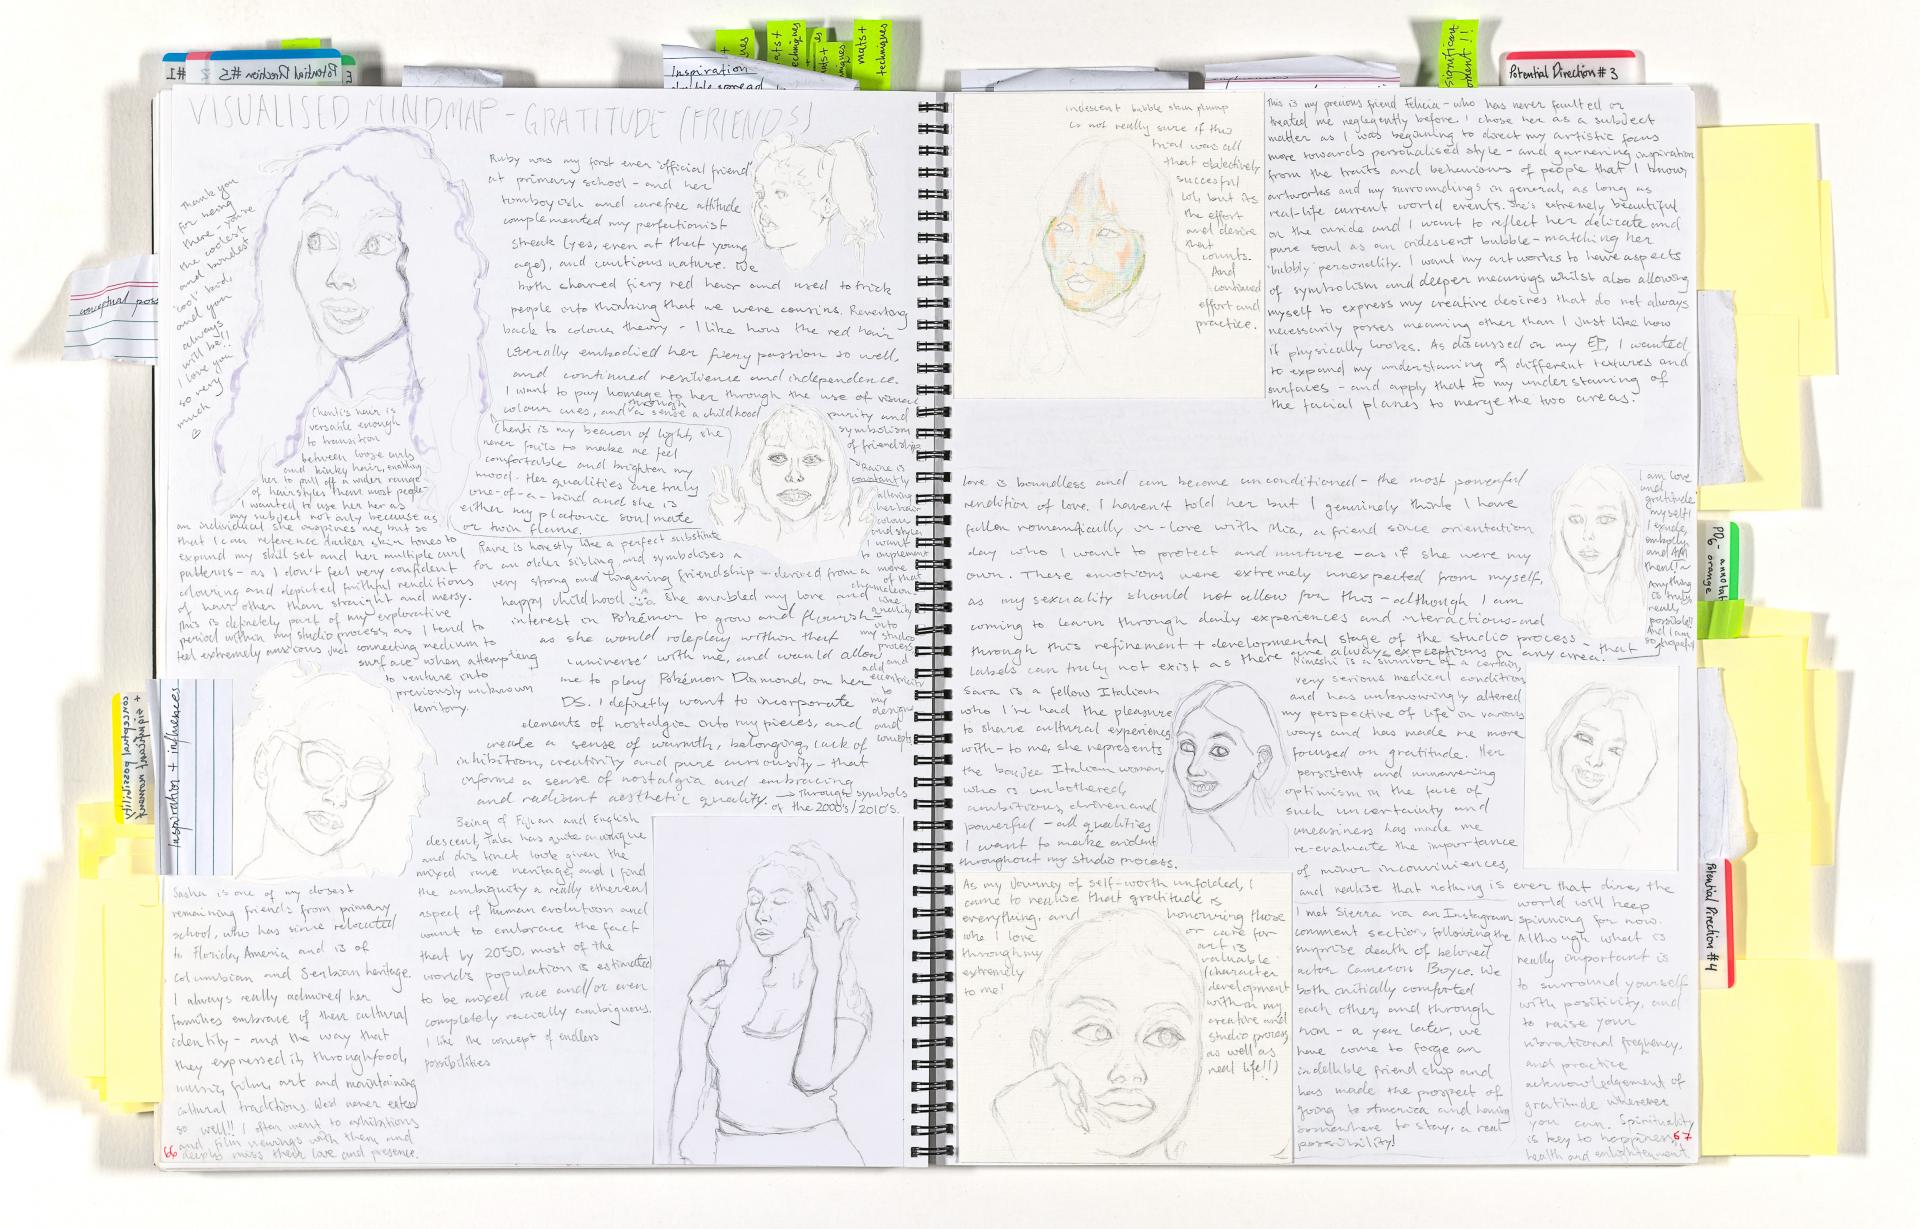 Potential Direction #5
#1
Inspiration
techniques
mats +
techniques
significant
moment!!
Potential Direction #3
conceptual poss
VISUALISED MINDMAP - GRATITUDE (FRIENDS)
Thank you
for being
there - you're
the coolest
and kindest
'cool' kid,
and you
always
will be!!
I love you
so very
much
♡
Ruby was my first ever 'official friend'
at primary school - and her
tomboyish and carefree attitude
complemented my perfectionist
streak (yes, even at that young
age), and cautious nature. We
both shared fiery red hair and used to trick
people into thinking that we were cousins. Reverting
back to colour theory - I like how the red hair
literally embodied her fiery passion so well,
and continued resilience and independence.
I want to pay homage to her through the use of visual
colour cues, and through a sense a childhood purity and
symbolism
of friendship.
Chenti's hair is
versatile enough
to transition
between loose curls
and kinky hair, enabling
her to pull off a wider range
of hairstyles than most people-
I wanted to use her as
my subject not only because as
an individual she inspires me, but so
that I can reference darker skin tones to
expand my skill set and her multiple curl
patterns - as I don't feel very confident
colouring and depicted faithful renditions
of hair other than straight and messy.
This is definetely part of my explorative
period within my studio process, as I tend to
feel extremely anxious just connecting medium to
surface when attempting
to venture into
previously unknown
territory.
Chenti is my beacon of light, she
never fails to make me feel
comfortable and brighten my
mood. Her qualities are truly
one-of-a-kind and she is
either my platonic soulmate
or twin flame.
Raine is honestly like a perfect substitute
for an older sibling, and symbolises a
very strong and lingering friendship - derived from a
happy childhood. She enabled my love and
interest in Pokémon to grow and flourish -
as she would roleplay within that
'universe' with me, and would allow
me to play Pokémon Diamond, on her
DS. I definetly want to incorporate
elements of nostalgia into my pieces, and
create a sense of warmth, belonging, lack of
inhibition, creativity and pure curiousity - that
informs a sense of nostalgia and embracing
and radiant aesthetic quality. → Through symbols
of the 2000's/2010's.
→ Raine is
constantly
altering
her hair
colour
and styles
I want
to implement
more
of that
chameleon
like
quality
into
my studio
process
and
add
eccentricity
to
my
designs
and
concepts.
Inspiration + influences
significant moment +
conceptual possibility
Sasha is one of my closest
remaining friends from primary
school, who has since relocated
to Florida, America and is of
Columbian and Serbian heritage.
I always really admired her
families embrace of their cultural
identity - and the way that
they expressed it, through food,
music, film, art and maintaining
cultural traditions. We'd never
so well!! I often went to exhibitions
and film viewings with them and
deeply miss their love and presence.
66
Being of Fijian and English
descent, Talei has quite an unique
and distinct look given the
mixed race heritage, and I find
the ambiguity a really ethereal
aspect of human evolution and
want to embrace the fact
that by 2050, most of the
world's population is estimated
to be mixed race and/or even
completely racially ambiguous.
I like the concept of endless
possibilities
iridescent bubble skin plump
Is not really sure if this
trial was all
that objectively
successful
lol, but its
the effort
and desire
that
counts.
And
continued
effort and
practice.
This is my precious friend Felicia - who has never faulted or
treated me neglegently before. I chose her as a subject
matter as I was beginning to direct my artistic focus
more towards personalised style - and garnering inspiration
from the traits and behaviours of people that I know,
artworks and my surroundings in general, as long as
real-life current world events. She's extremely beautiful
on the inside and I want to reflect her delicate and
pure soul as an iridescent bubble - matching her
'bubbly' personality. I want my artworks to have aspects
of symbolism and deeper meanings whilst also allowing
myself to express my creative desires that do not always
necessarily posses meaning other than I just like how
it physically looks. As discussed in my EP, I wanted
to expand my understanding of different textures and
surfaces - and apply that to my understanding of
the facial planes to merge the two areas.
Love is boundless and can become unconditioned - the most powerful
rendition of love. I haven't told her but I genuinely think I have
fallen romantically in-love with Mia, a friend since orientation
day who I want to protect and nurture - as if she were my
own. These emotions were extremely unexpected from myself,
as my sexuality should not allow for this - although I am
coming to learn through daily experiences and interactions - and
through this refinement + developmental stage of the studio process - that
labels can truly not exist as there are always exceptions in any area.
I am love
and
gratitude
myself!
I exude,
embody
and AM
them!~
Anything
is truly
really
possible!!
And I am
so hopeful
Sara is a fellow Italian
who I've had the pleasure
to share cultural experiences
with - to me, she represents
the boujee Italian woman,
who is unbothered,
ambitious, driven and
powerful - all qualities
I want to make evident
throughout my studio process.
Nimeshi is a survivor of a certain,
very serious medical condition
and has unknowingly altered
my perspective of life in various
ways and has made me more
focused on gratitude. Her
persistent and unwavering
optimism in the face of
such uncertainty and
uneasiness has made me
re-evaluate the importance
of minor inconviniences,
and realise that nothing is ever that dire, the
world will keep
spinning for now.
Although what is
really important is
to surround yourself
with positivity, and
to raise your
vibrational frequency,
and practice
acknowledgement of
gratitude wherever
you can. Spirituality
is key to happiness,
health and enlightenment
As my journey of self-worth unfolded, I
came to realise that gratitude is
everything, and honouring those
who I love or care for
through my art is
extremely valuable
to me! (character
development
within my
creative and
studio process
as well as
real life!!)
I met Sierra via an Instagram
comment section, following the
surprise death of beloved
actor Cameron Boyce. We
both initially comforted
each other, and through
now - a year later, we
have come to forge an
indellible friendship and
has made the prospect of
going to America and having
somewhere to stay, a real
possibility!
67
orange
Potential Direction #4